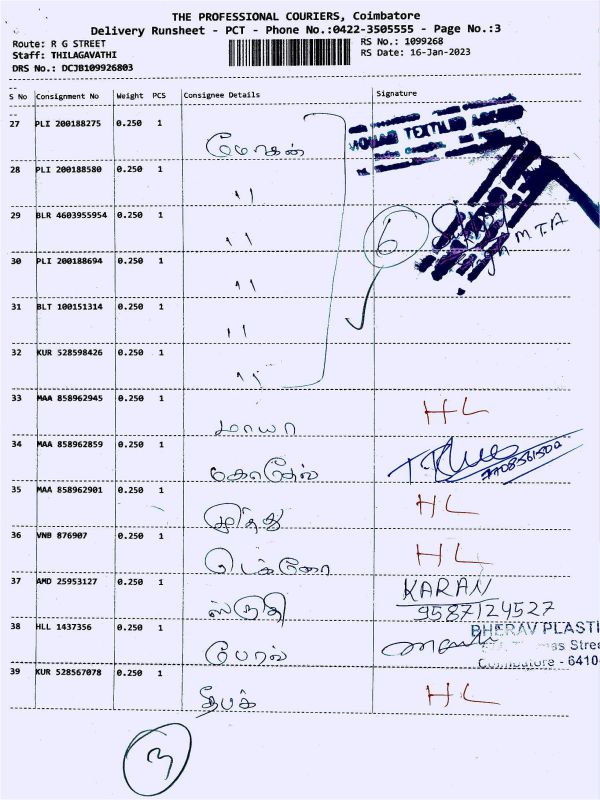 THE PROFESSIONAL COURIERS, Coimbatore
Delivery Runsheet - PCT - Phone No.:0422-3505555 - Page No.:3
Route: R G STREET RS No.: 1099268
Staff: THILAGAVATHI RS Date: 16-Jan-2023
DRS No.: DCJB109926803
S No Consignment No Weight PCS Consignee Details Signature
27 PLI 200188275 0.250 1 மோகன் TEXTILES
28 PLI 200188580 0.250 1 11
29 BLR 4603955954 0.250 1 11 6 M.T.A
30 PLI 200188694 0.250 1 11
31 BLT 100151314 0.250 1 11
32 KUR 528598426 0.250 1 11
33 MAA 858962945 0.250 1 மாயா HL
34 MAA 858962859 0.250 1
35 MAA 858962901 0.250 1 HL
36 VNB 876907 0.250 1 HL
37 AMD 25953127 0.250 1 KARAN
9587124527
38 HLL 1437356 0.250 1 BHERAV PLASTI
Stree
Coimbatore - 6410
39 KUR 528567078 0.250 1 தீபக் HL
3